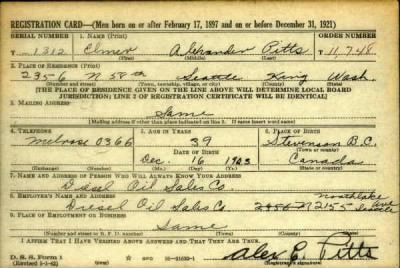 REGISTRATION CARD—(Men born on or after February 17, 1897 and on or before December 31, 1921)
SERIAL NUMBER 1. NAME (Print) ORDER NUMBER
T 1312 Elmer Alexander Pitts T 11,748
(First) (Middle) (Last)
2. PLACE OF RESIDENCE (Print)
2356 N 58th Seattle King Wash.
(Number and street) (Town, township, village, or city) (County) (State)
[THE PLACE OF RESIDENCE GIVEN ON THE LINE ABOVE WILL DETERMINE LOCAL BOARD
JURISDICTION; LINE 2 OF REGISTRATION CERTIFICATE WILL BE IDENTICAL]
3. MAILING ADDRESS
Same
[Mailing address if other than place indicated on line 2. If same insert word same]
4. TELEPHONE 5. AGE IN YEARS 6. PLACE OF BIRTH
Melrose 0366 39 Stevenson B.C.
DATE OF BIRTH (Town or county)
Dec. 16 1903 Canada
(Exchange) (Number) (Mo.) (Day) (Yr.) (State or country)
7. NAME AND ADDRESS OF PERSON WHO WILL ALWAYS KNOW YOUR ADDRESS
Diesel Oil Sales Co.
8. EMPLOYER'S NAME AND ADDRESS Northlake Ave
Diesel Oil Sales Co. 2155 Seattle
9. PLACE OF EMPLOYMENT OR BUSINESS
Same
(Number and street or R. F. D. number) (Town) (County) (State)
I AFFIRM THAT I HAVE VERIFIED ABOVE ANSWERS AND THAT THEY ARE TRUE.
D. S. S. Form 1 GPO 16—21630-1 Alex E. Pitts
(Registrant's signature)